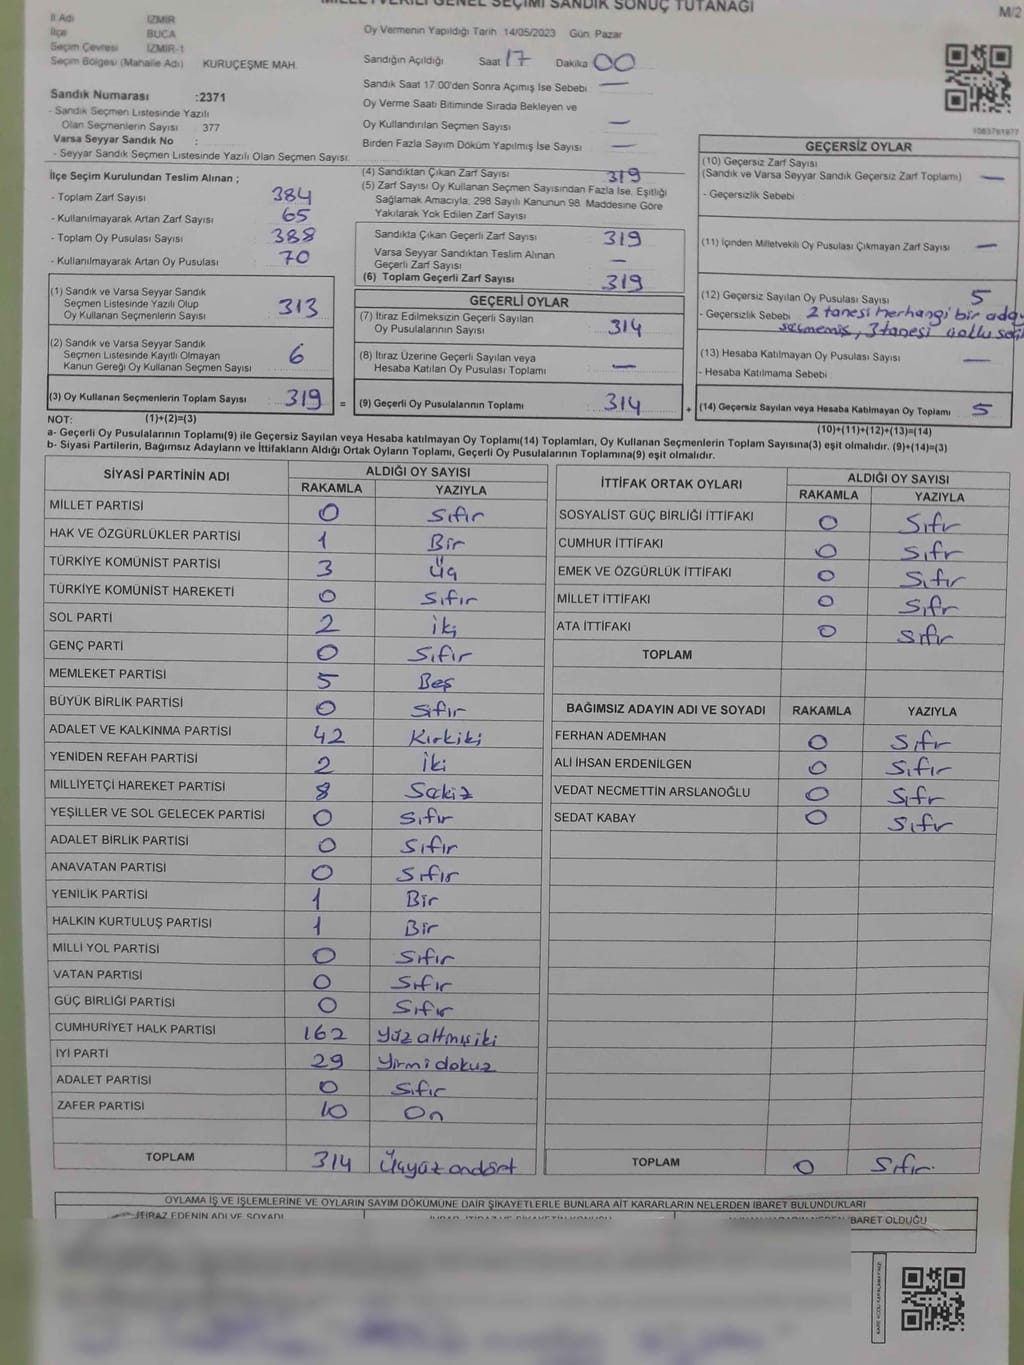 MİLLETVEKİLİ GENEL SEÇİMİ SANDIK SONUÇ TUTANAĞI
M/2
İl Adı İZMİR
İlçe BUCA
Seçim Çevresi İZMİR-1
Seçim Bölgesi (Mahalle Adı) KURUÇEŞME MAH.
Sandık Numarası :2371
- Sandık Seçmen Listesinde Yazılı
Olan Seçmenlerin Sayısı 377
Varsa Seyyar Sandık No :
- Seyyar Sandık Seçmen Listesinde Yazılı Olan Seçmen Sayısı
Oy Vermenin Yapıldığı Tarih 14/05/2023 Gün: Pazar
Sandığın Açıldığı Saat 17 Dakika 00
Sandık Saat 17:00'den Sonra Açılmış İse Sebebi —
Oy Verme Saati Bitiminde Sırada Bekleyen ve
Oy Kullandırılan Seçmen Sayısı —
Birden Fazla Sayım Döküm Yapılmış İse Sayısı —
İlçe Seçim Kurulundan Teslim Alınan ;
- Toplam Zarf Sayısı 384
- Kullanılmayarak Artan Zarf Sayısı 65
- Toplam Oy Pusulası Sayısı 388
- Kullanılmayarak Artan Oy Pusulası 70
(1) Sandık ve Varsa Seyyar Sandık
Seçmen Listesinde Yazılı Olup
Oy Kullanan Seçmenlerin Sayısı 313
(2) Sandık ve Varsa Seyyar Sandık
Seçmen Listesinde Kayıtlı Olmayan
Kanun Gereği Oy Kullanan Seçmen Sayısı 6
(3) Oy Kullanan Seçmenlerin Toplam Sayısı 319 =
(4) Sandıktan Çıkan Zarf Sayısı 319
(5) Zarf Sayısı Oy Kullanan Seçmen Sayısından Fazla İse, Eşitliği
Sağlamak Amacıyla, 298 Sayılı Kanunun 98. Maddesine Göre
Yakılarak Yok Edilen Zarf Sayısı
Sandıkta Çıkan Geçerli Zarf Sayısı 319
Varsa Seyyar Sandıktan Teslim Alınan
Geçerli Zarf Sayısı —
(6) Toplam Geçerli Zarf Sayısı 319
GEÇERLİ OYLAR
(7) İtiraz Edilmeksizin Geçerli Sayılan
Oy Pusulalarının Sayısı 314
(8) İtiraz Üzerine Geçerli Sayılan veya
Hesaba Katılan Oy Pusulası Toplamı —
(9) Geçerli Oy Pusulalarının Toplamı 314 +
GEÇERSİZ OYLAR
(10) Geçersiz Zarf Sayısı
(Sandık ve Varsa Seyyar Sandık Geçersiz Zarf Toplamı) —
- Geçersizlik Sebebi
(11) İçinden Milletvekili Oy Pusulası Çıkmayan Zarf Sayısı —
(12) Geçersiz Sayılan Oy Pusulası Sayısı 5
- Geçersizlik Sebebi 2 tanesi herhangi bir
seçmemiş, 3 tanesi
(13) Hesaba Katılmayan Oy Pusulası Sayısı —
- Hesaba Katılmama Sebebi
(14) Geçersiz Sayılan veya Hesaba Katılmayan Oy Toplamı 5
NOT: (1)+(2)=(3) (10)+(11)+(12)+(13)=(14)
a- Geçerli Oy Pusulalarının Toplamı(9) ile Geçersiz Sayılan veya Hesaba katılmayan Oy Toplamı(14) Toplamları, Oy Kullanan Seçmenlerin Toplam Sayısına(3) eşit olmalıdır. (9)+(14)=(3)
b- Siyasi Partilerin, Bağımsız Adayların ve İttifakların Aldığı Ortak Oyların Toplamı, Geçerli Oy Pusulalarının Toplamına(9) eşit olmalıdır.
SİYASİ PARTİNİN ADI ALDIĞI OY SAYISI
RAKAMLA YAZIYLA
MİLLET PARTİSİ 0 Sıfır
HAK VE ÖZGÜRLÜKLER PARTİSİ 1 Bir
TÜRKİYE KOMÜNİST PARTİSİ 3 Üç
TÜRKİYE KOMÜNİST HAREKETİ 0 Sıfır
SOL PARTİ 2 iki
GENÇ PARTİ 0 Sıfır
MEMLEKET PARTİSİ 5 Beş
BÜYÜK BİRLİK PARTİSİ 0 Sıfır
ADALET VE KALKINMA PARTİSİ 42 Kırkiki
YENİDEN REFAH PARTİSİ 2 İki
MİLLİYETÇİ HAREKET PARTİSİ 8 Sekiz
YEŞİLLER VE SOL GELECEK PARTİSİ 0 Sıfır
ADALET BİRLİK PARTİSİ 0 Sıfır
ANAVATAN PARTİSİ 0 Sıfır
YENİLİK PARTİSİ 1 Bir
HALKIN KURTULUŞ PARTİSİ 1 Bir
MİLLİ YOL PARTİSİ 0 Sıfır
VATAN PARTİSİ 0 Sıfır
GÜÇ BİRLİĞİ PARTİSİ 0 Sıfır
CUMHURİYET HALK PARTİSİ 162 Yüzaltmışiki
İYİ PARTİ 29 Yirmidokuz
ADALET PARTİSİ 0 Sıfır
ZAFER PARTİSİ 10 On
TOPLAM 314 Üçyüzondört
İTTİFAK ORTAK OYLARI ALDIĞI OY SAYISI
RAKAMLA YAZIYLA
SOSYALİST GÜÇ BİRLİĞİ İTTİFAKI 0 Sıfır
CUMHUR İTTİFAKI 0 Sıfır
EMEK VE ÖZGÜRLÜK İTTİFAKI 0 Sıfır
MİLLET İTTİFAKI 0 Sıfır
ATA İTTİFAKI 0 Sıfır
TOPLAM
BAĞIMSIZ ADAYIN ADI VE SOYADI RAKAMLA YAZIYLA
FERHAN ADEMHAN 0 Sıfır
ALİ İHSAN ERDENİLGEN 0 Sıfır
VEDAT NECMETTİN ARSLANOĞLU 0 Sıfır
SEDAT KABAY 0 Sıfır
TOPLAM 0 Sıfır
OYLAMA İŞ VE İŞLEMLERİNE VE OYLARIN SAYIM DÖKÜMÜNE DAİR ŞİKAYETLERLE BUNLARA AİT KARARLARIN NELERDEN İBARET BULUNDUKLARI
İTİRAZ EDENİN ADI VE SOYADI
İBARET OLDUĞU